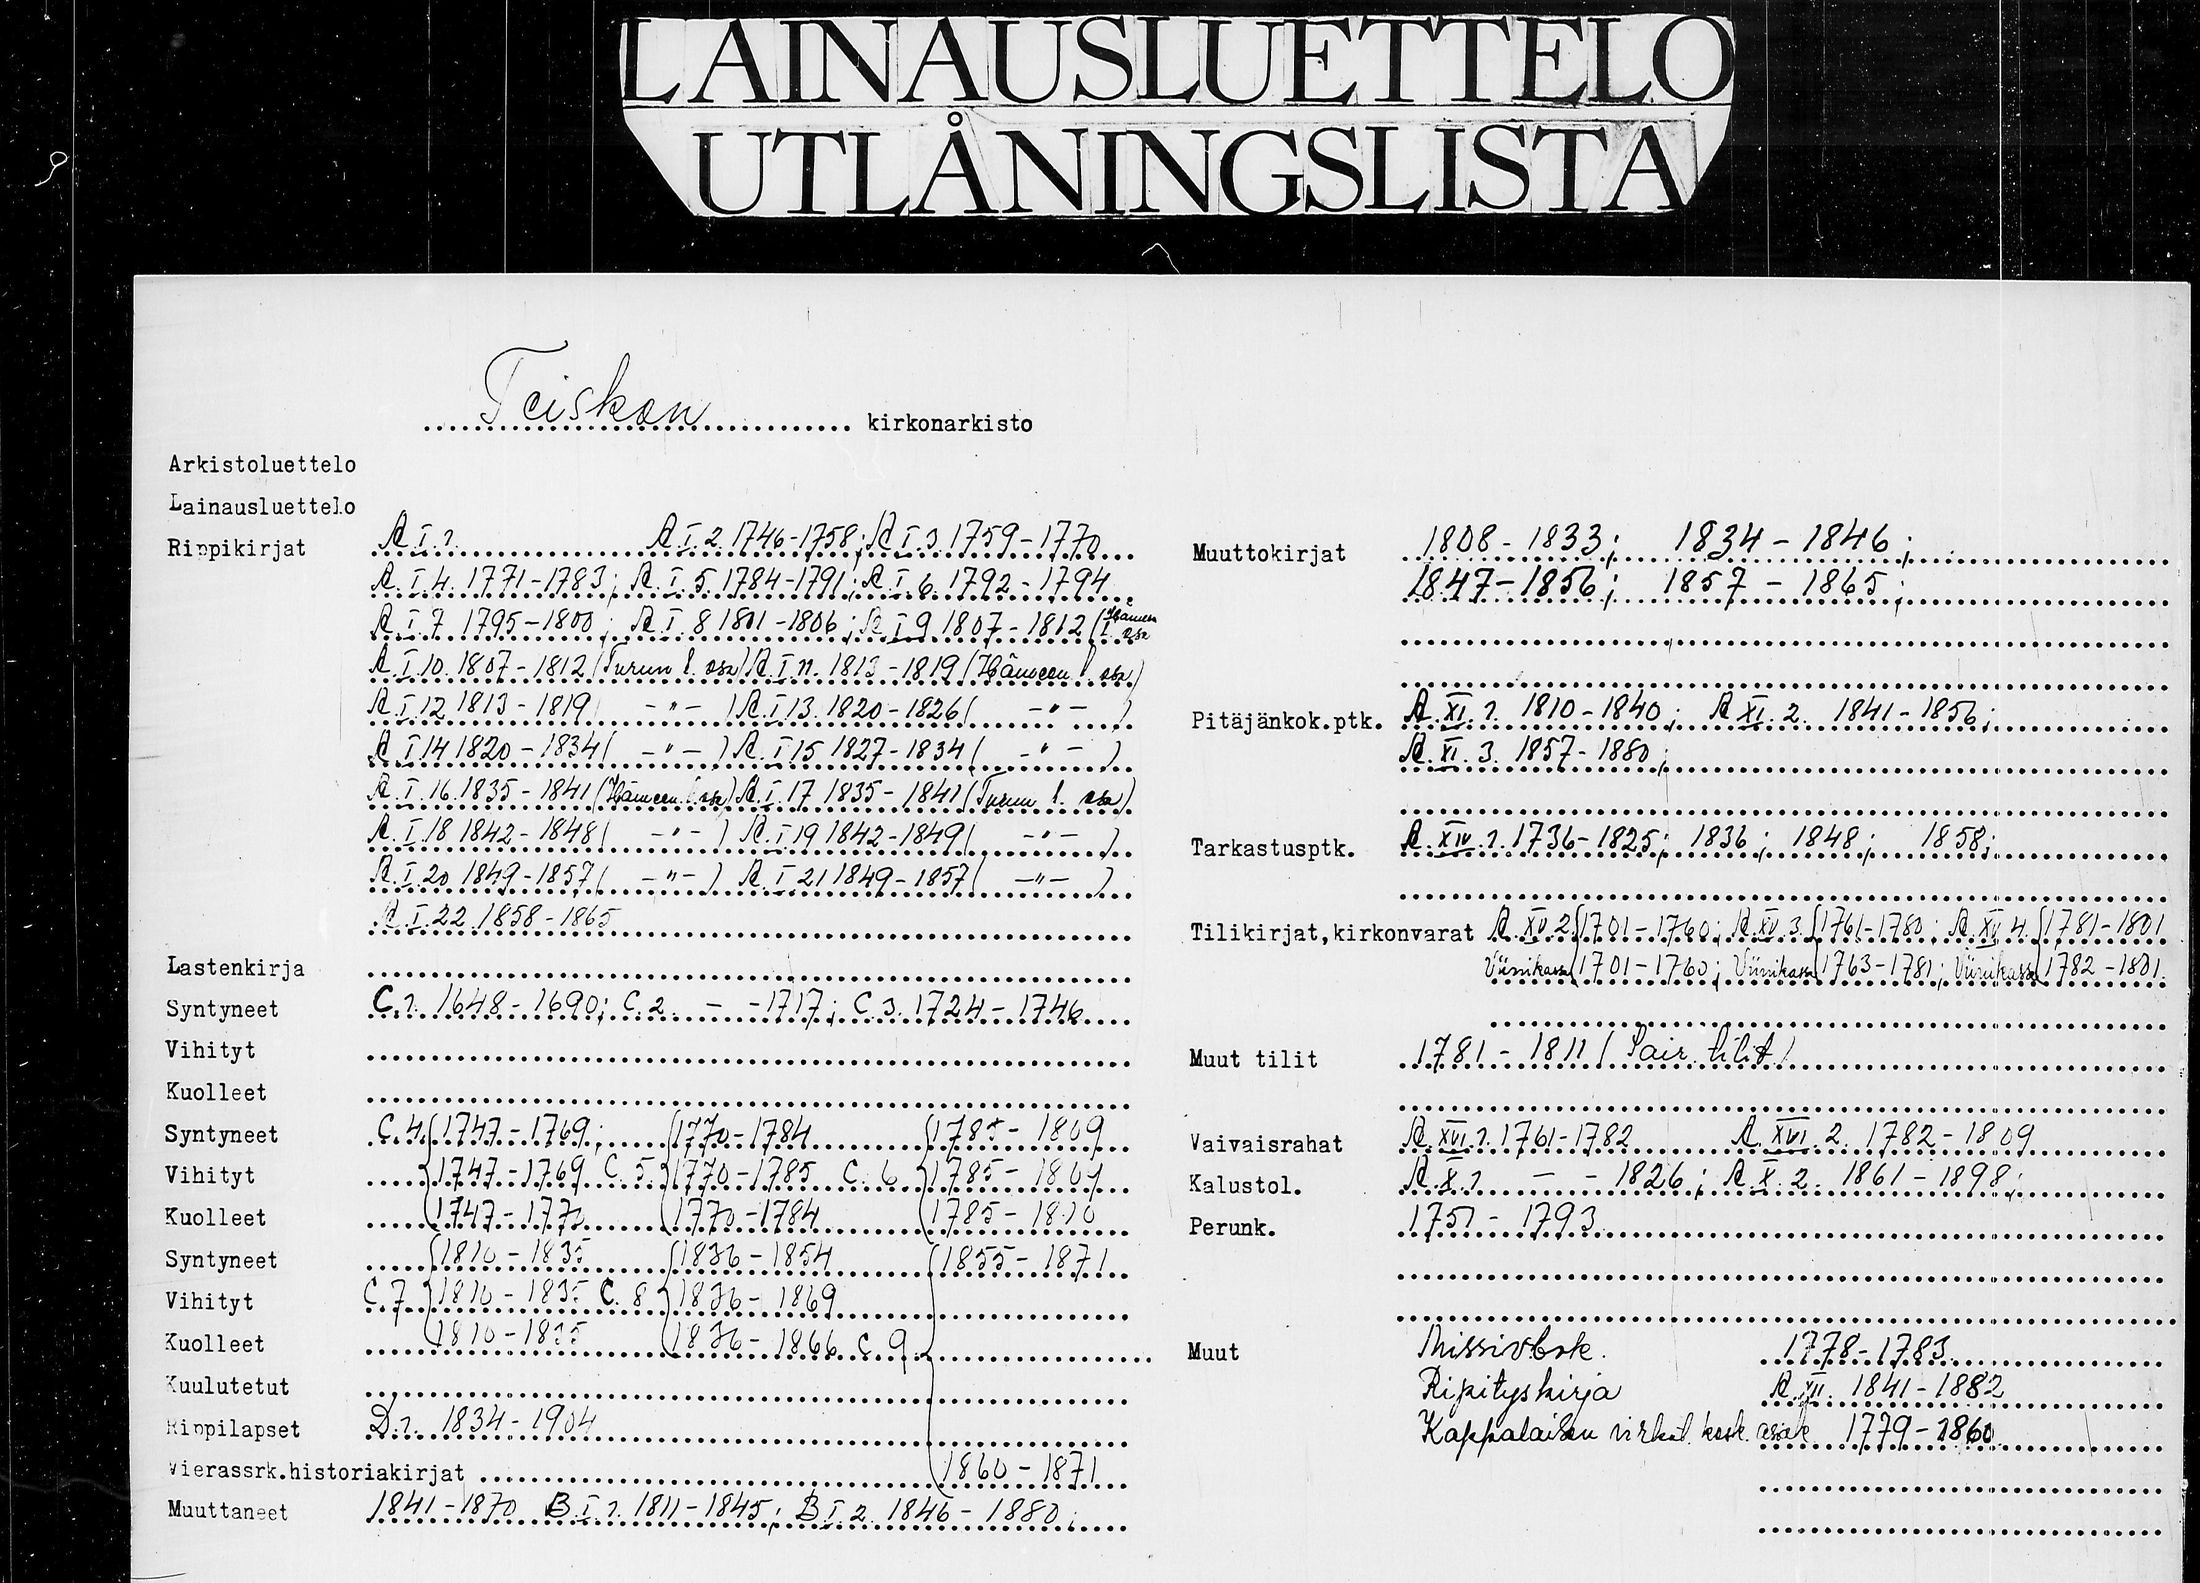 LAINAUSLUETTELO
UTLÅNINGSLISTA
Teiskon kirkonarkisto
Arkistoluettelo
Lainausluettelo
Rippikirjat A I 1. A I 2 1746-1758; A I 3 1759-1770
A I 4. 1771-1783; A I 5 1784-1791; A I 6 1792-1794
A I 7 1795-1800; A I 8 1801-1806; A I 9 1807-1812 (Hämeen l. osa
A I 10. 1807-1812 (Turun l. osa) A I 11. 1813-1819 (Hämeen l. osa)
A I 12 1813-1819 ( -"- ) A I 13. 1820-1826 ( -"- )
A I 14 1820-1834 ( -"- ) A I 15 1827-1834 ( -"- )
A I 16. 1835-1841 (Hämeen l. osa) A I 17 1835-1841 (Turun l. osa)
A I 18 1842-1848 ( -"- ) A I 19 1842-1849 ( -"- )
A I 20 1849-1857 ( -"- ) A I 21 1849-1857 ( -"- )
A I 22 1858-1865
Lastenkirja
Syntyneet C.1. 1648-1690; C.2 - -1717; C 3. 1724-1746
Vihityt
Kuolleet
Syntyneet C.4 (1747-1769; (1770-1784 (1785-1809
Vihityt 1747-1769 C.5. 1770-1785 C. 6 1785-1809
Kuolleet 1747-1770 1770-1784 1785-1810
Syntyneet 1810-1835 1836-1854 1855-1871
Vihityt C.7 1810-1835 C.8 1836-1869
Kuolleet 1810-1835 1836-1866 C 9
Kuulutetut
Rippilapset D.1. 1834-1904
Vierassrk.historiakirjat 1860-1871
Muuttaneet 1841-1870 B I 1. 1811-1845; B I 2 1846-1880;
Muuttokirjat 1808-1833; 1834-1846;
1847-1856; 1857-1865;
Pitäjänkok.ptk. A XI 1. 1810-1840; A XI 2. 1841-1856;
A XI 3. 1857-1880;
Tarkastusptk. A XIV 1. 1736-1825; 1836; 1848; 1858;
Tilikirjat,kirkonvarat A XV 2 (1701-1760; A XV 3 (1761-1780; A XV 4. (1781-1801
Viinikassa 1701-1760; Viinikassa 1763-1781; Viinikassa 1782-1801.
Muut tilit 1781-1811 (Sair. tilit)
Vaivaisrahat A XVI 1. 1761-1782 A XVI 2. 1782-1809
Kalustol. A X 1 - - 1826; A X 2. 1861-1898;
Perunk. 1751-1793
Muut Missivbok. 1778-1783
Ripityskirja A XII 1841-1882
Kappalaisen virkat. kosk. asiak 1779-1860